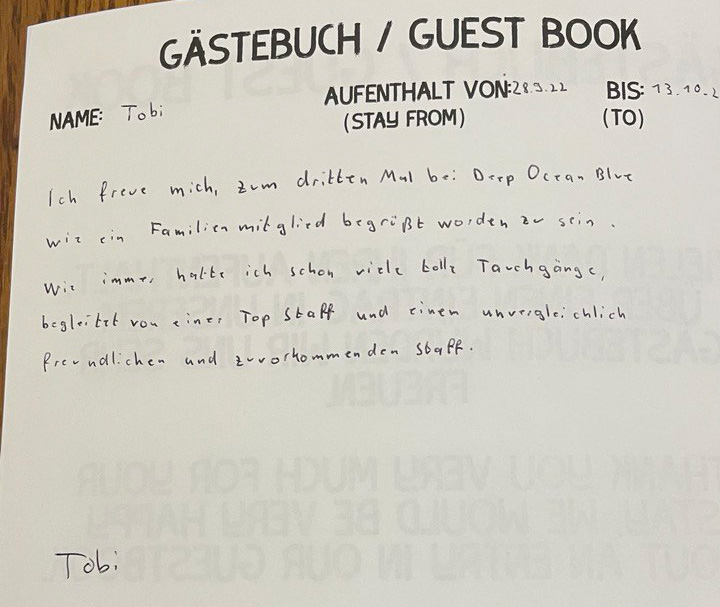 GÄSTEBUCH / GUEST BOOK
NAME: Tobi AUFENTHALT VON: 28.9.22 BIS: 13.10.2
(STAY FROM) (TO)
Ich freue mich, zum dritten Mal bei Deep Ocean Blue
wie ein Familienmitglied begrüßt worden zu sein.
Wie immer hatte ich schon viele tolle Tauchgänge,
begleitet von einer Top Staff und einen unvergleichlich
freundlichen und zuvorkommenden Staff.
Tobi